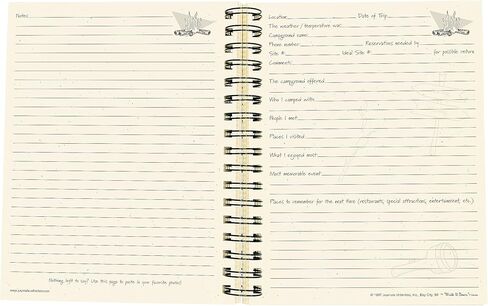 Notes:
Nothing left to say? Use this page to paste in your favorite photos!
www.journalsunlimited.com
Location Date of Trip
The weather / temperature was:
Campground name:
Phone number Reservations needed by
Site #: Ideal Site #: for possible return
Comments:
The campground offered
Who I camped with
People I met
Places I visited
What I enjoyed most
Most memorable event
Places to remember for the next time (restaurants, special attractions, entertainment, etc.)
Journals Unlimited, Inc., Bay City, MI "Write it Down!"